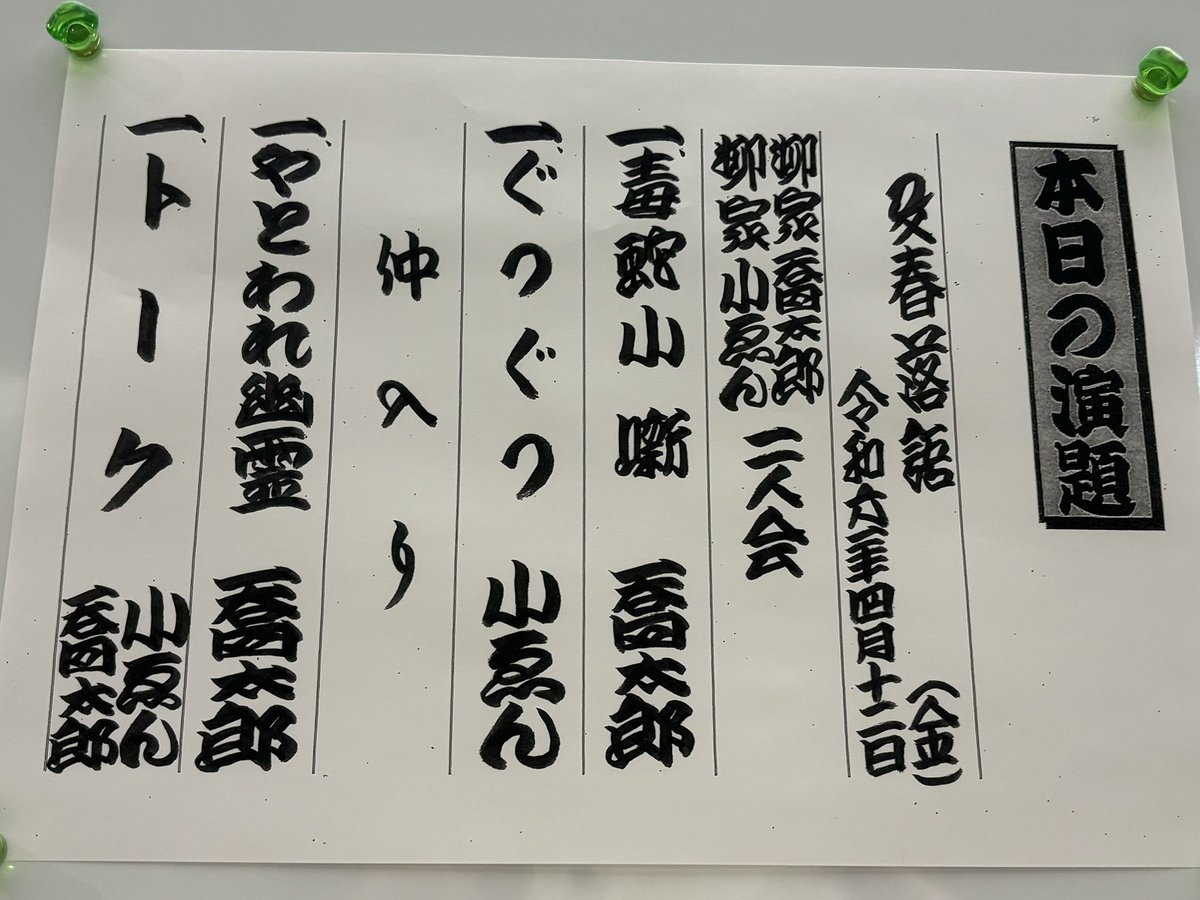 本日の演題
文春落語
令和六年四月十二日(金)
柳家喬太郎
柳家小ゑん 二人会
一、毒蛇小噺 喬太郎
一、ぐつぐつ 小ゑん
仲入り
一、やとわれ幽霊 喬太郎
一、トーク 小ゑん
喬太郎